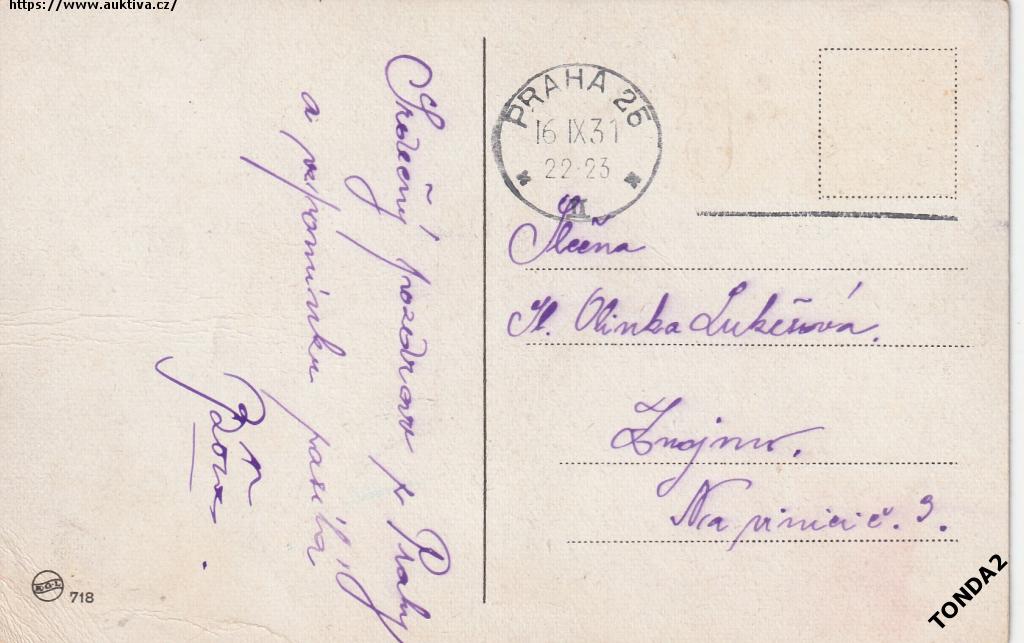 https://www.auktiva.cz/
Srdečný pozdrav z Prahy
a vzpomínku posílá
PRAHA 25
16 IX 31
22-23
Slečna
Sl. Olinka Lukešová.
Znojmo.
Na vinici č. 3.
718
TONDA2